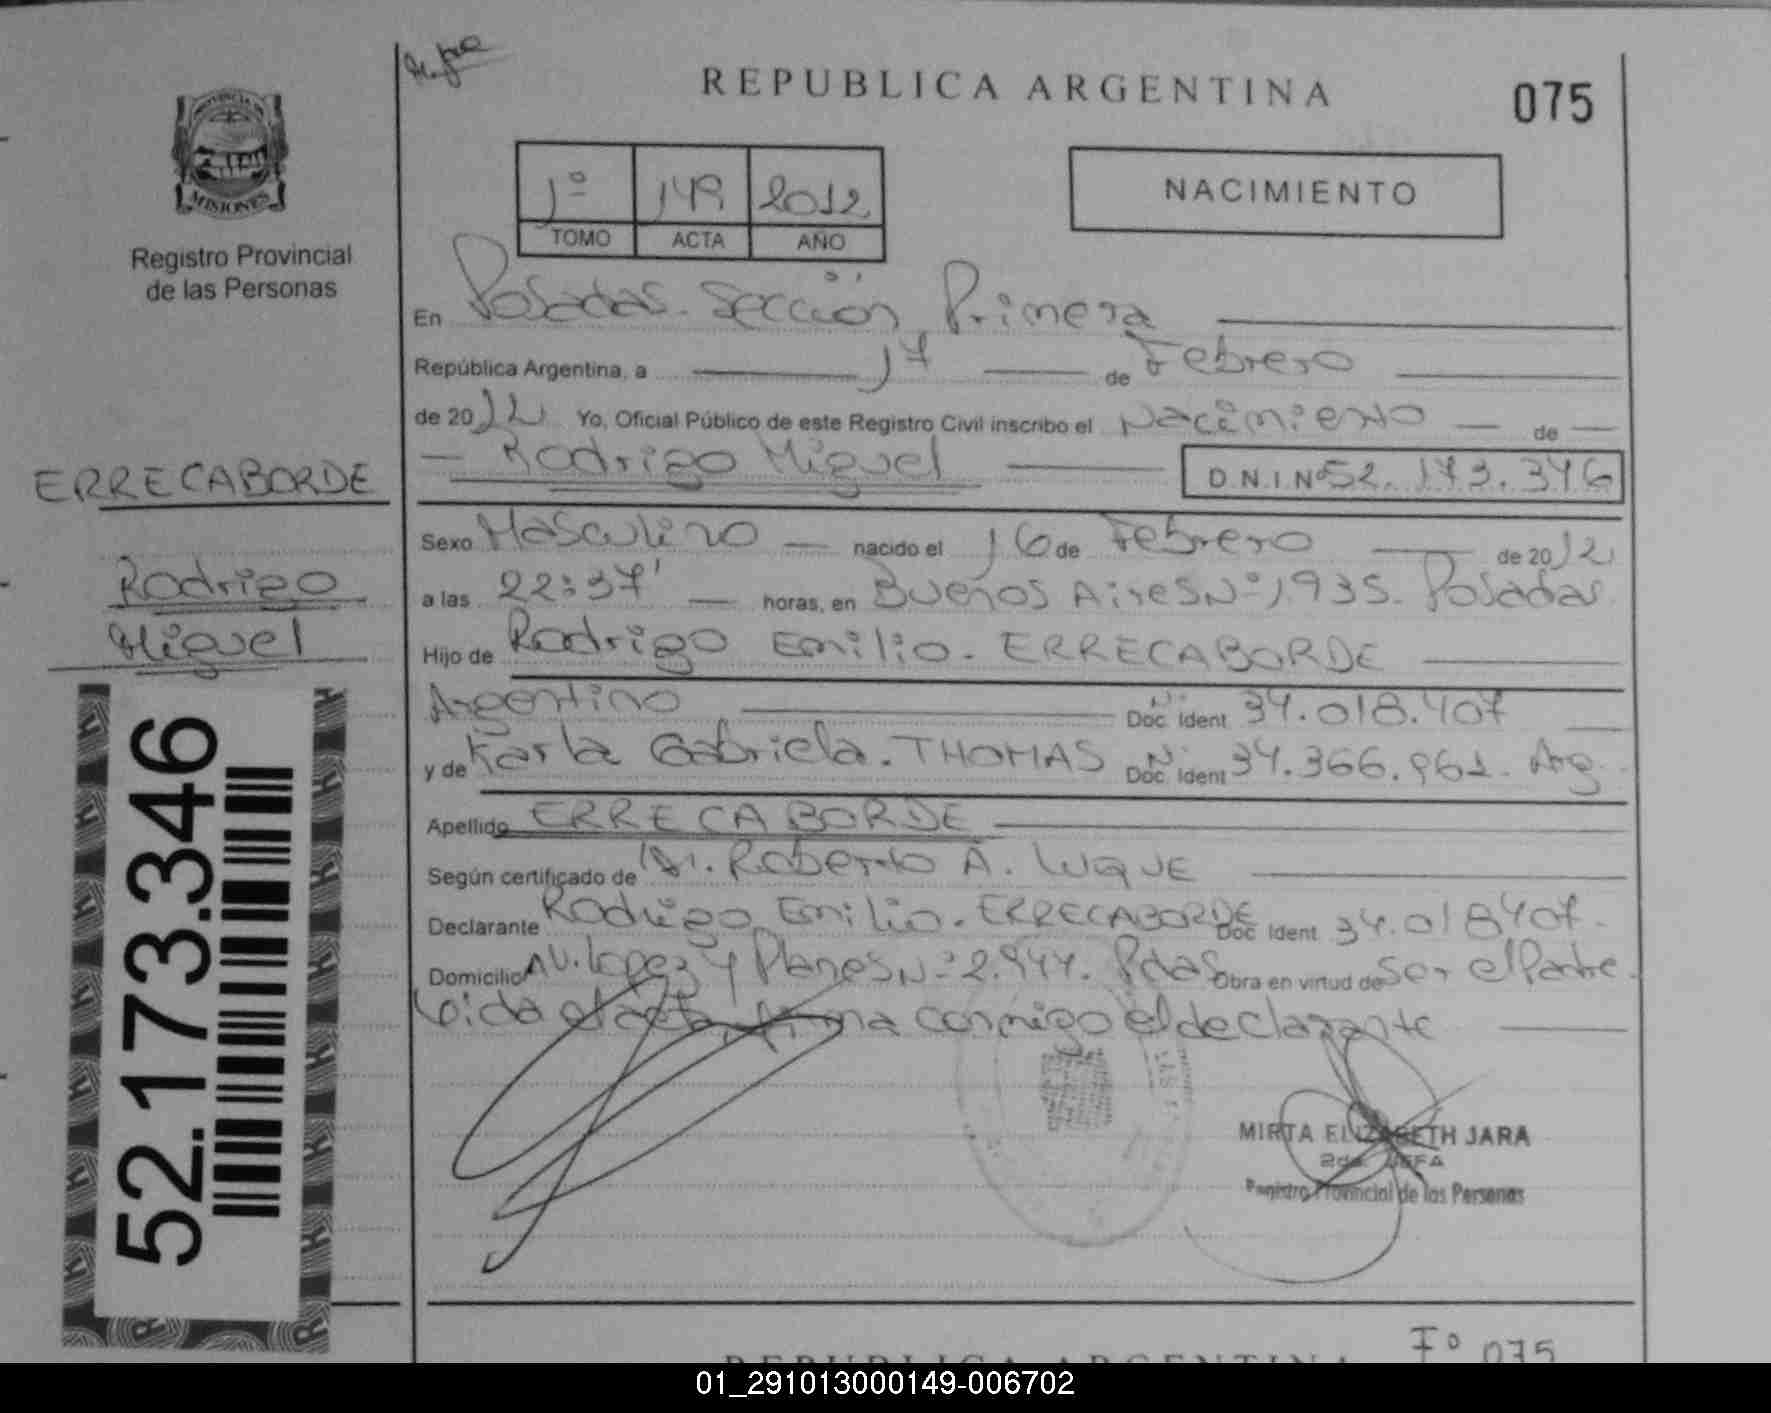 REPUBLICA ARGENTINA
075
PROVINCIA DE
MISIONES
Registro Provincial
de las Personas
1º 149 2012
TOMO ACTA AÑO
NACIMIENTO
En Posadas. Sección Primera
República Argentina, a 17 de Febrero
de 2012 Yo, Oficial Público de este Registro Civil inscribo el Nacimiento de
Rodrigo Miguel D.N.I Nº 52.173.346
ERRECABORDE
Rodrigo
Miguel
52.173.346
Sexo Masculino nacido el 16 de Febrero de 2012
a las 22:37' horas, en Buenos Aires Nº 1.935. Posadas
Hijo de Rodrigo Emilio. ERRECABORDE
Argentino Nº Doc. Ident 34.018.407
y de Karla Gabriela. THOMAS Nº Doc. Ident 34.366.961. Arg.
Apellido ERRECABORDE
Según certificado de Dr. Roberto A. LUQUE
Declarante Rodrigo Emilio. ERRECABORDE Doc Ident. 34.018407.
Domicilio Av. Lopez y Planes Nº 2.944. Pdas Obra en virtud de Ser el Padre.
Leida el acta, firma conmigo el declarante
MIRTA ELIZABETH JARA
2da JEFA
Registro Provincial de las Personas
Fº 075
REPUBLICA ARGENTINA
01_291013000149-006702